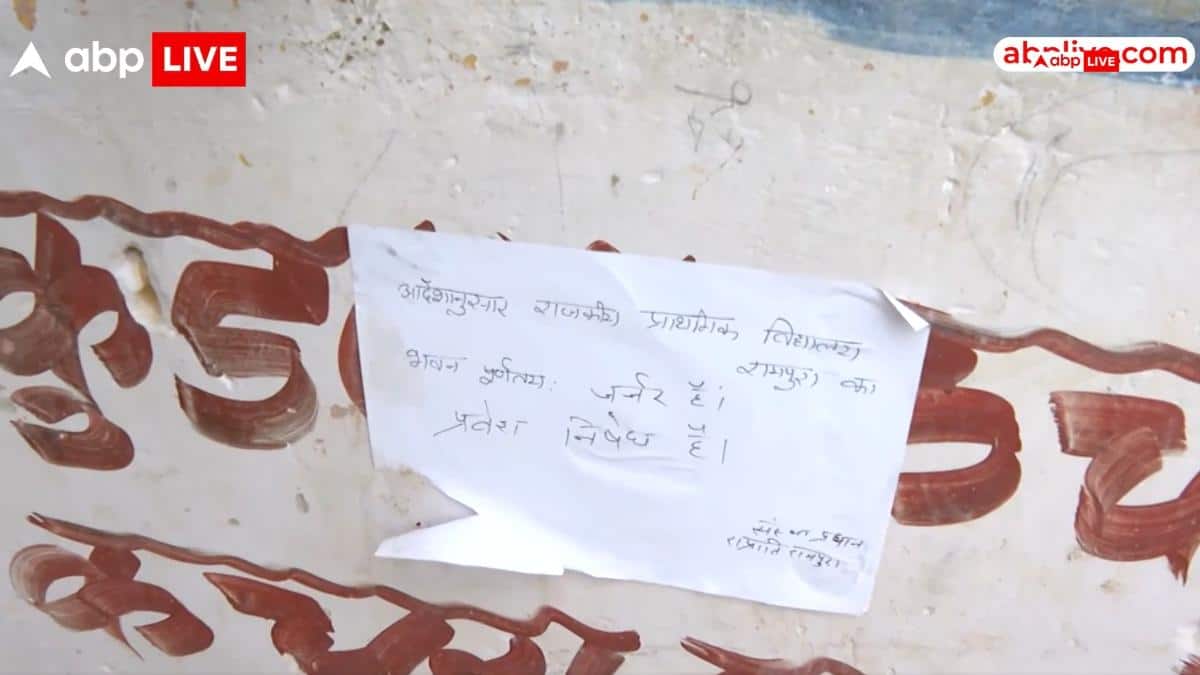 abp LIVE
abplive.com
abp LIVE
आदेशानुसार राजकीय प्राथमिक विद्यालय
रामपुरा का
भवन पूर्णतय: जर्जर है।
प्रवेश निषेध है।
संस्था प्रधान
राप्रावि रामपुरा